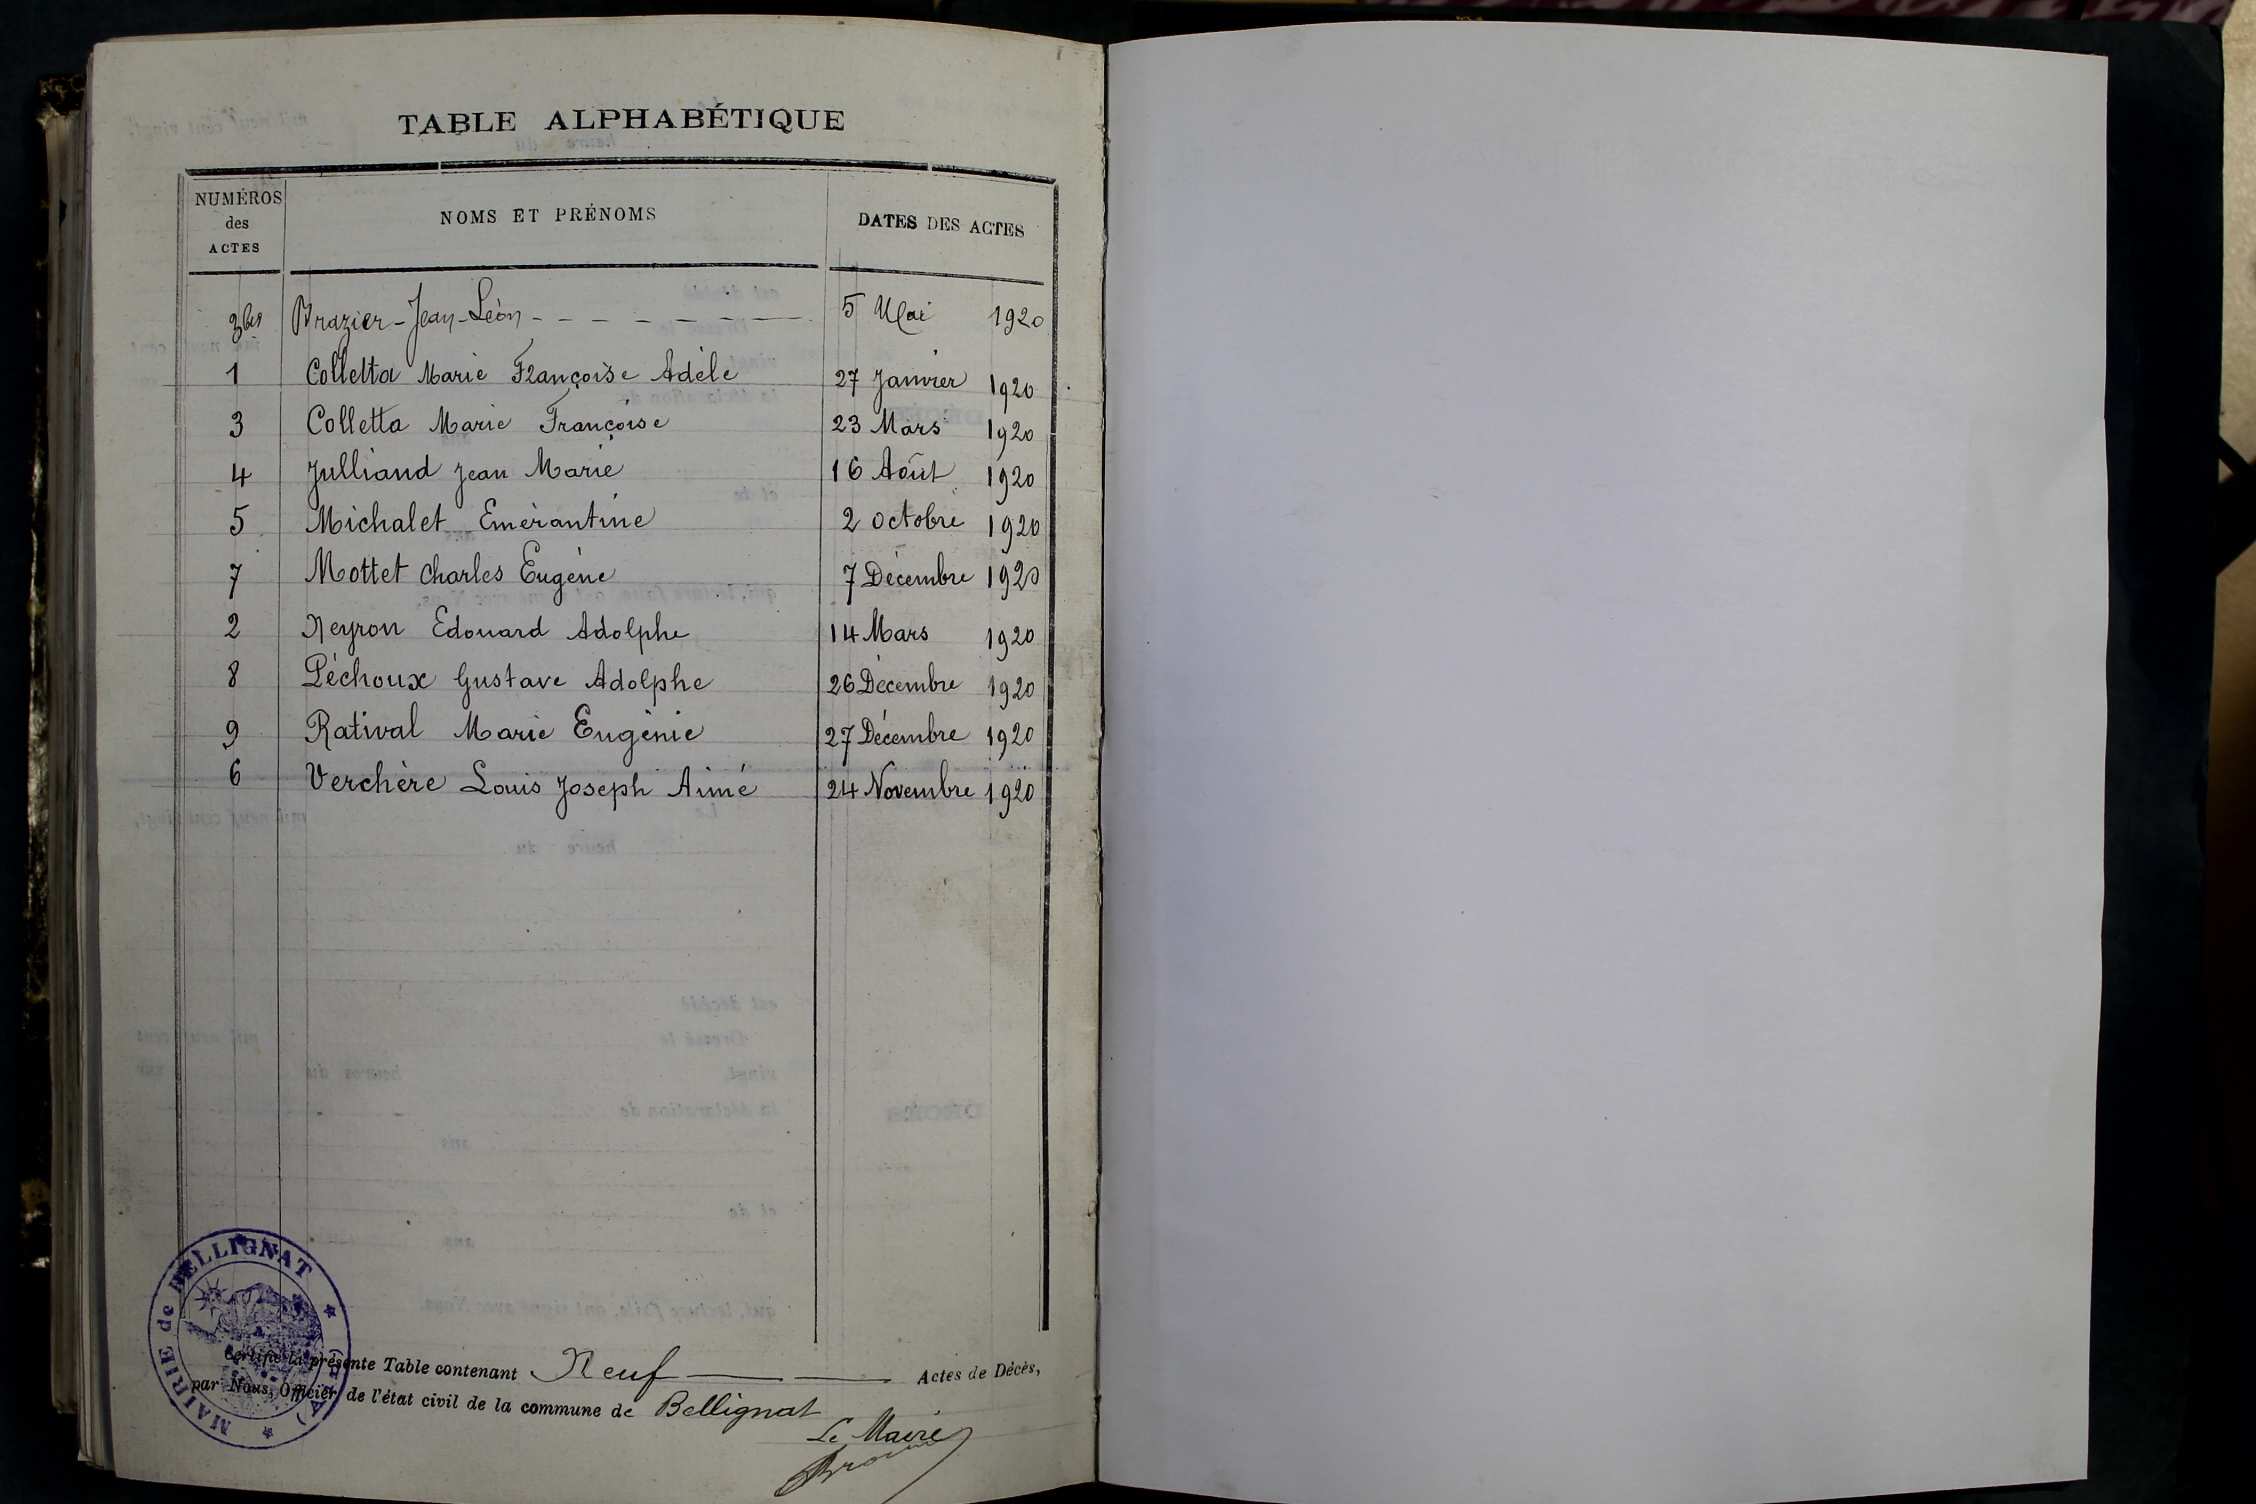 TABLE ALPHABÉTIQUE
NUMÉROS
des
ACTES
NOMS ET PRÉNOMS
DATES DES ACTES
3bis Brazier-Jean-Léon 5 Mai 1920
1 Colletta Marie Françoise Adèle 27 Janvier 1920
3 Colletta Marie Françoise 23 Mars 1920
4 Julliand Jean Marie 16 Août 1920
5 Michalet Emérantine 2 Octobre 1920
7 Mottet Charles Eugène 7 Décembre 1920
2 Neyron Edouard Adolphe 14 Mars 1920
8 Péchoux Gustave Adolphe 26 Décembre 1920
9 Ratival Marie Eugénie 27 Décembre 1920
6 Verchère Louis Joseph Aimé 24 Novembre 1920
MAIRIE de BELLIGNAT
Certifié la présente Table contenant Neuf Actes de Décès,
par Nous, Officier de l'état civil de la commune de Bellignat
Le Maire